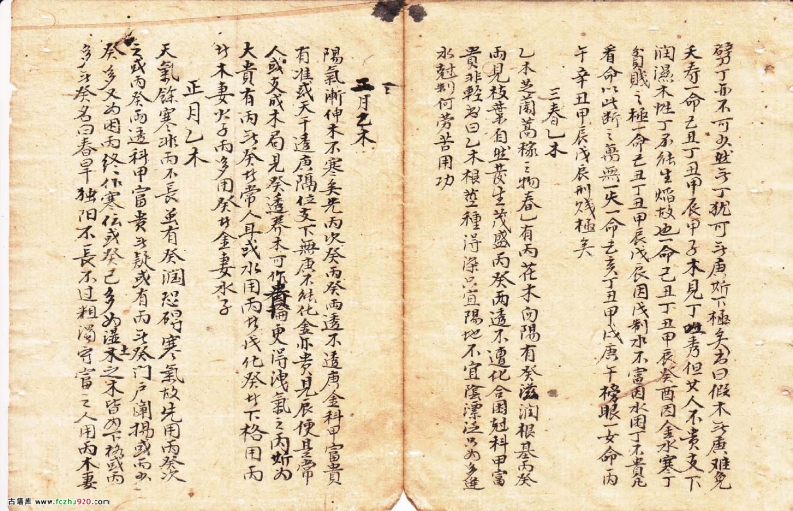 劈丁亦不可少無丁犹可无庚斯下極矣書曰假木无庚难免
夭寿一命己丑丁丑甲辰甲子木見丁 秀但女人不貴支下
润濕木性丁不能生焰故也一命己丑丁丑甲辰癸酉因金水寒丁
貧賤之極一命己丑丁丑甲辰戊辰因戊制水不富因水困丁不貴凡
看命以此断之萬無一失一命己亥丁丑甲戌庚午榜眼一女命丙
午辛丑甲辰戊辰刑贱極矣
三春乙木
乙木芝蘭蒿 之物春乙有丙花木向陽有癸滋润根基丙癸
两見枝葉自然發生茂盛丙癸两透不遭化合困尅科甲富
貴非輕書曰乙木根 種得深只宜陽地不宜陰漂泛只为多逢
水尅制何劳苦用功
三
正月乙木
陽氣漸伸木不寒矣先丙次癸丙癸两透不透庚金科甲富貴
有准或天干透庚隅位支下無庚不能化金亦貴見辰便是常
人或支成木局見癸透养木可作貴論更得洩氣之丙斯为
大貴有丙无癸 常人耳或水用丙 戊化癸 下格用丙
 木妻火子丙多用癸 金妻水子
正月乙木
天氣餘寒非丙不長虽有癸润恐碍寒氣故先用丙癸次
之或丙癸两透科甲富贵无疑或有丙无癸门户闡揚或丙少
癸多又为困丙终作寒伝或癸己多为湿土之木皆为下格或丙
多无癸名曰春旱独阳不長不过粗濁守富之人用丙木妻
古籍库 www.fczhu920.com